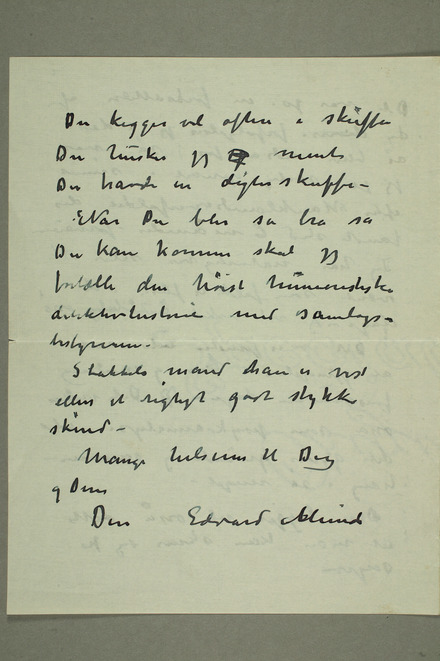 Du ligger vel oftere i skuffe
Du husker jeg mente
Du havde en digterskuffe –
Når Du blir så bra så
Du kan komme skal jeg
fortælle den høist humoristiske
detektivhistorie med samlags-
bestyreren.
Stakkels mand han er vist
ellers et rigtigt godt stykke
skind –
Mange hilsener til Dig
og Dine
Din Edvard Munch